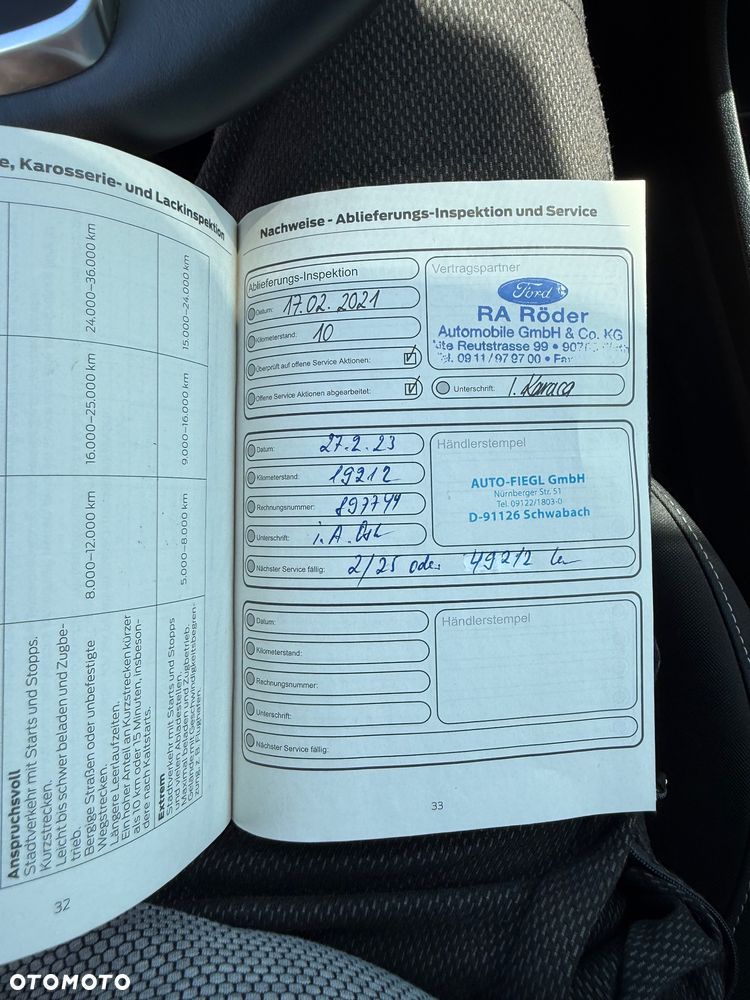 e, Karosserie- und Lackinspektion
24.000–36.000 km
15.000–24.000 km
16.000–25.000 km
9.000–16.000 km
8.000–12.000 km
5.000–8.000 km
Anspruchsvoll
Stadtverkehr mit Starts und Stopps.
Kurzstrecken.
Leicht bis schwer beladen und Zugbe-
trieb.
Bergige Straßen oder unbefestigte
Wegstrecken.
Längere Leerlaufzeiten.
Ein hoher Anteil an Kurzstrecken kürzer
als 10 km oder 15 Minuten, insbeson-
dere nach Kaltstarts.
Extrem
Stadtverkehr mit Starts und Stopps
und vielen Abladestellen.
Maximal beladen und Zugbetrieb.
Gelände mit Geschwindigkeitsbegren-
zung, z. B. Flughäfen.
32
Nachweise - Ablieferungs-Inspektion und Service
Ablieferungs-Inspektion
Datum: 17.02.2021
Kilometerstand: 10
Überprüft auf offene Service Aktionen:
Offene Service Aktionen abgearbeitet:
Vertragspartner
Ford
RA Röder
Automobile GmbH & Co. KG
Reutstrasse 99
Tel. 09 11 / 97 97 00 • Fax
Unterschrift:
Datum: 27.2.23
Kilometerstand: 19212
Rechnungsnummer: 897744
Unterschrift: i.A.
Nächster Service fällig: 2/25 oder 49212 km
Händlerstempel
AUTO-FIEGL GmbH
Nürnberger Str. 51
Tel. 09122/1803-0
D-91126 Schwabach
Datum:
Kilometerstand:
Rechnungsnummer:
Unterschrift:
Nächster Service fällig:
Händlerstempel
33
OTOMOTO